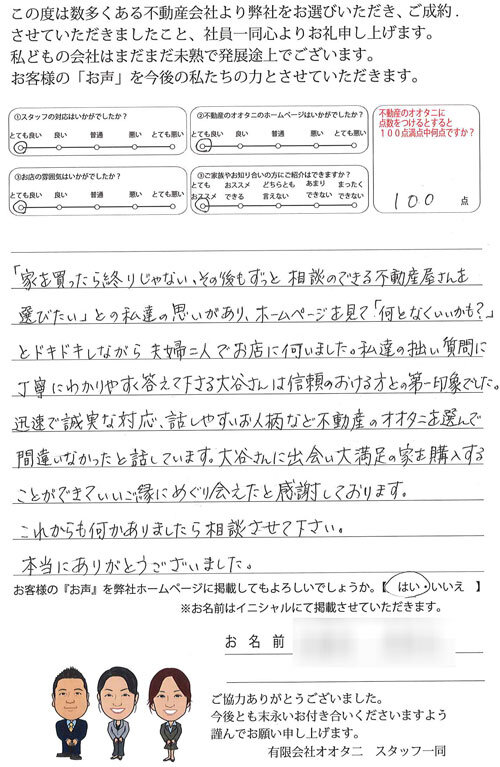 この度は数多くある不動産会社より弊社をお選びいただき、ご成約.
させていただきましたこと、社員一同心よりお礼申し上げます。
私どもの会社はまだまだ未熟で発展途上でございます。
お客様の「お声」を今後の私たちの力とさせていただきます。
①スタッフの対応はいかがでしたか?
とても良い 良い 普通 悪い とても悪い
②不動産のオオタニのホームページはいかがでしたか?
とても良い 良い 普通 悪い とても悪い
不動産のオオタニに
点数をつけるとすると
100点満点中何点ですか?
100 点
③お店の雰囲気はいかがでしたか?
とても良い 良い 普通 悪い とても悪い
③ご家族やお知り合いの方にご紹介はできますか?
とても オススメ どちらとも あまり まったく
おススメ できる 言えない できない できない
「家を買ったら終りじゃない、その後もずっと相談のできる不動産屋さんを
選びたい」との私達の思いがあり、ホームページを見て「何となくいいかも?」
とドキドキしながら夫婦二人でお店に伺いました。私達の拙い質問に
丁寧にわかりやすく答えて下さる大谷さんは信頼のおける方との第一印象でした。
迅速で誠実な対応、話しやすいお人柄など不動産のオオタニを選んで
間違いなかったと話しています。大谷さんに出会い大満足の家を購入する
ことができていいご縁にめぐり会えたと感謝しております。
これからも何かありましたら相談させて下さい。
本当にありがとうございました。
お客様の『お声』を弊社ホームページに掲載してもよろしいでしょうか。【 はい・いいえ 】
※お名前はイニシャルにて掲載させていただきます。
お名前
ご協力ありがとうございました。
今後とも末永いお付き合いくださいますよう
謹んでお願い申し上げます。
有限会社オオタニ スタッフ一同